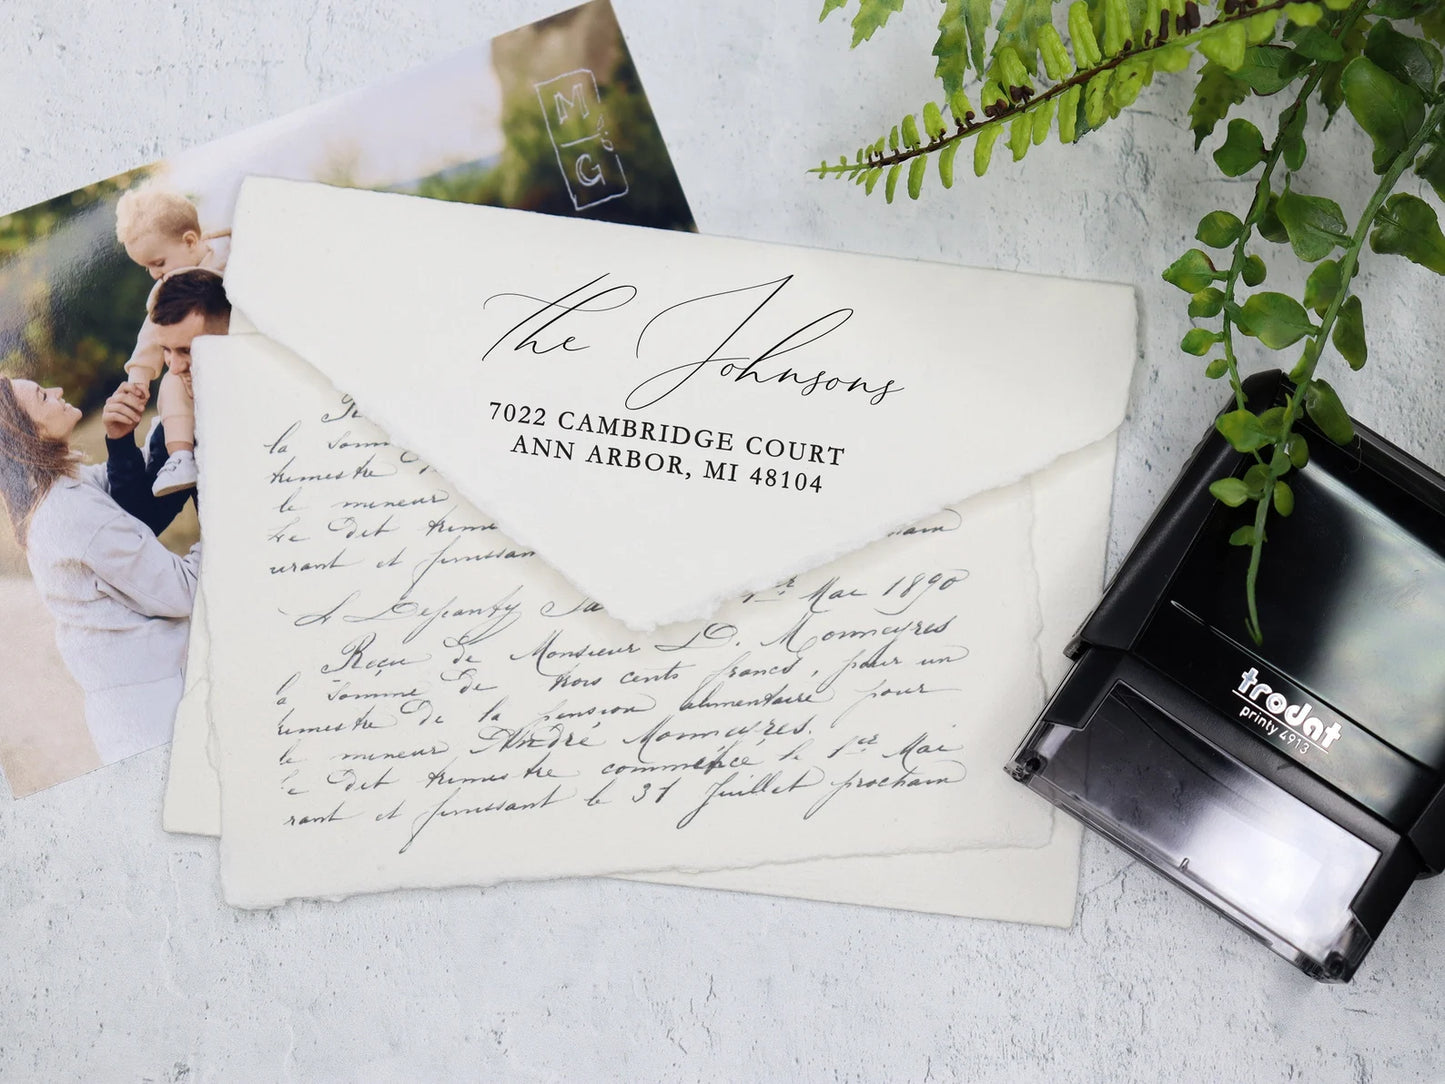 M
&
G
the Johnsons
7022 CAMBRIDGE COURT
ANN ARBOR, MI 48104
la Somm
trimestre
le mineur
Le dit trime
urant et finissan
1er Mai 1890
Reçu de Monsieur D. Monneyres
la somme de trois cents francs, pour un
trimestre de la pension alimentaire pour
le mineur André Monneyres.
Le dit trimestre commencé le 1er Mai
rant et finissant le 31 Juillet prochain
trodat
printy 4913